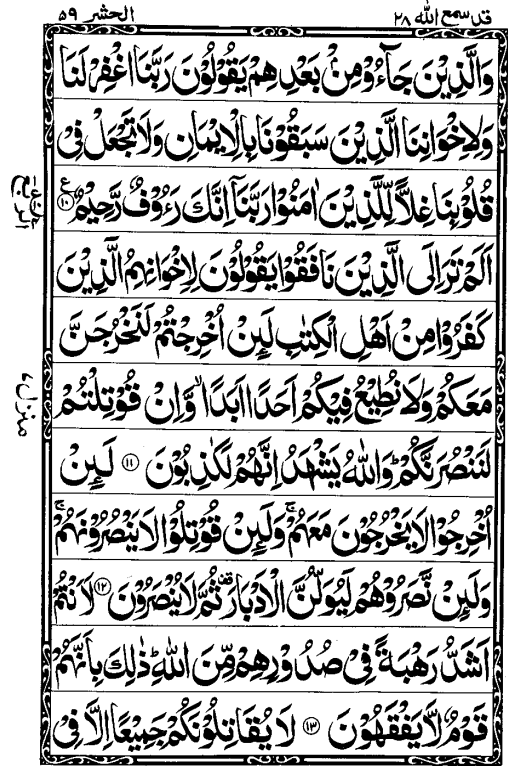 قد سمع الله ٢٨
الحشر ٥٩
وَالَّذِيۡنَ جَآءُوۡ مِنۡۢ بَعۡدِهِمۡ يَقُوۡلُوۡنَ رَبَّنَا اغۡفِرۡ لَنَا
وَلِاِخۡوَانِنَا الَّذِيۡنَ سَبَقُوۡنَا بِالۡاِيۡمَانِ وَلَا تَجۡعَلۡ فِىۡ
قُلُوۡبِنَا غِلًّا لِّلَّذِيۡنَ اٰمَنُوۡا رَبَّنَاۤ اِنَّكَ رَءُوۡفٌ رَّحِيۡمٌ ﴿١٠﴾ ع
اَلَمۡ تَرَ اِلَى الَّذِيۡنَ نَافَقُوۡا يَقُوۡلُوۡنَ لِاِخۡوَانِهِمُ الَّذِيۡنَ
كَفَرُوۡا مِنۡ اَهۡلِ الۡكِتٰبِ لَئِنۡ اُخۡرِجۡتُمۡ لَنَخۡرُجَنَّ
مَعَكُمۡ وَلَا نُطِيۡعُ فِيۡكُمۡ اَحَدًا اَبَدًاۙ وَّاِنۡ قُوۡتِلۡتُمۡ
لَنَنۡصُرَنَّكُمۡؕ وَاللّٰهُ يَشۡهَدُ اِنَّهُمۡ لَكٰذِبُوۡنَ ﴿١١﴾ لَئِنۡ
اُخۡرِجُوۡا لَا يَخۡرُجُوۡنَ مَعَهُمۡۚ وَلَئِنۡ قُوۡتِلُوۡا لَا يَنۡصُرُوۡنَهُمۡۚ
وَلَئِنۡ نَّصَرُوۡهُمۡ لَيُوَلُّنَّ الۡاَدۡبَارَ ثُمَّ لَا يُنۡصَرُوۡنَ ﴿١٢﴾ لَاَنۡتُمۡ
اَشَدُّ رَهۡبَةً فِىۡ صُدُوۡرِهِمۡ مِّنَ اللّٰهِؕ ذٰلِكَ بِاَنَّهُمۡ
قَوۡمٌ لَّا يَفۡقَهُوۡنَ ﴿١٣﴾ لَا يُقَاتِلُوۡنَكُمۡ جَمِيۡعًا اِلَّا فِىۡ
منزل ٧